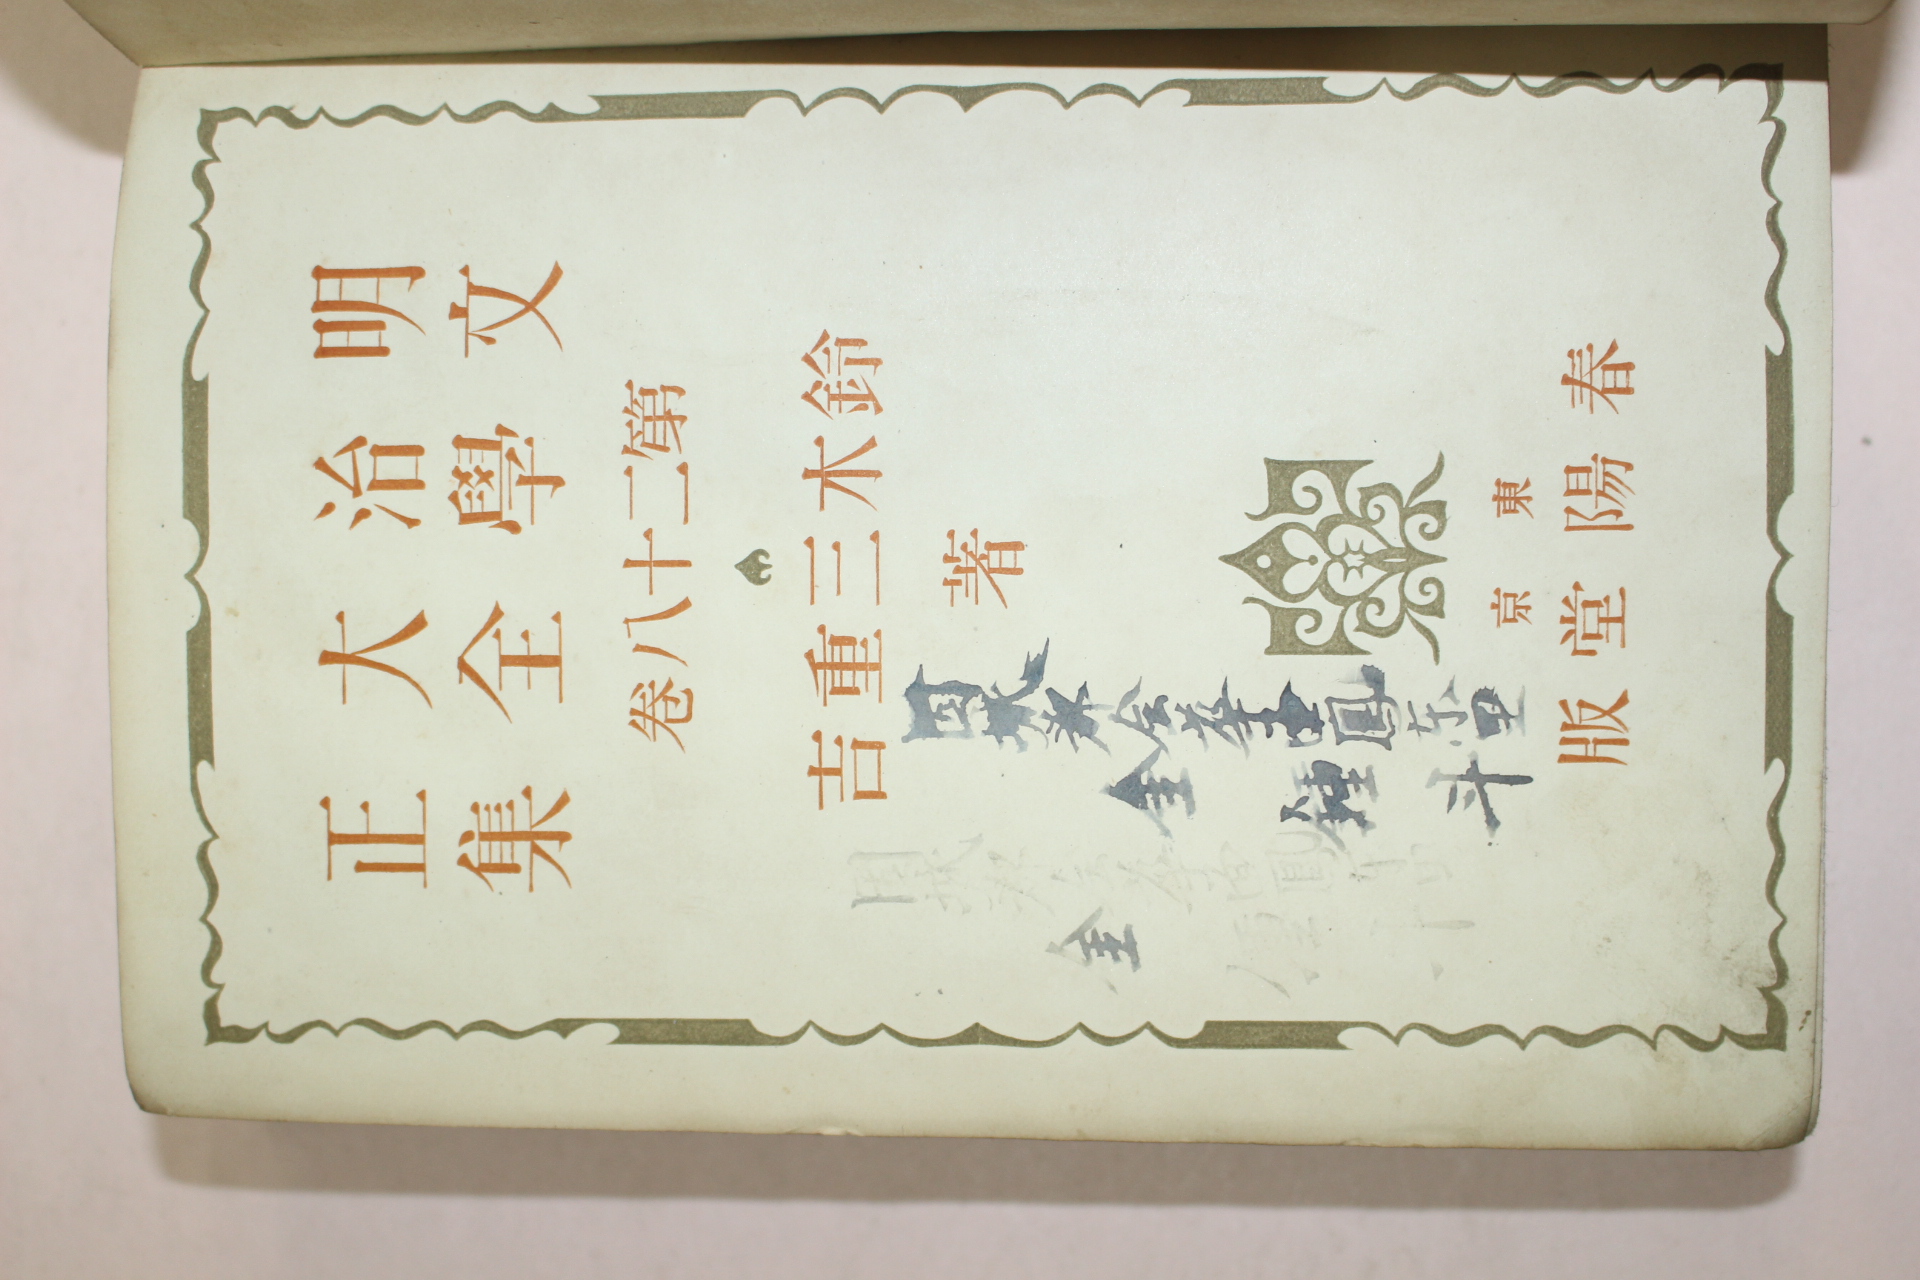 明治大正
文學全集
第二十八卷
鈴木三重吉
著
東京
春陽堂版